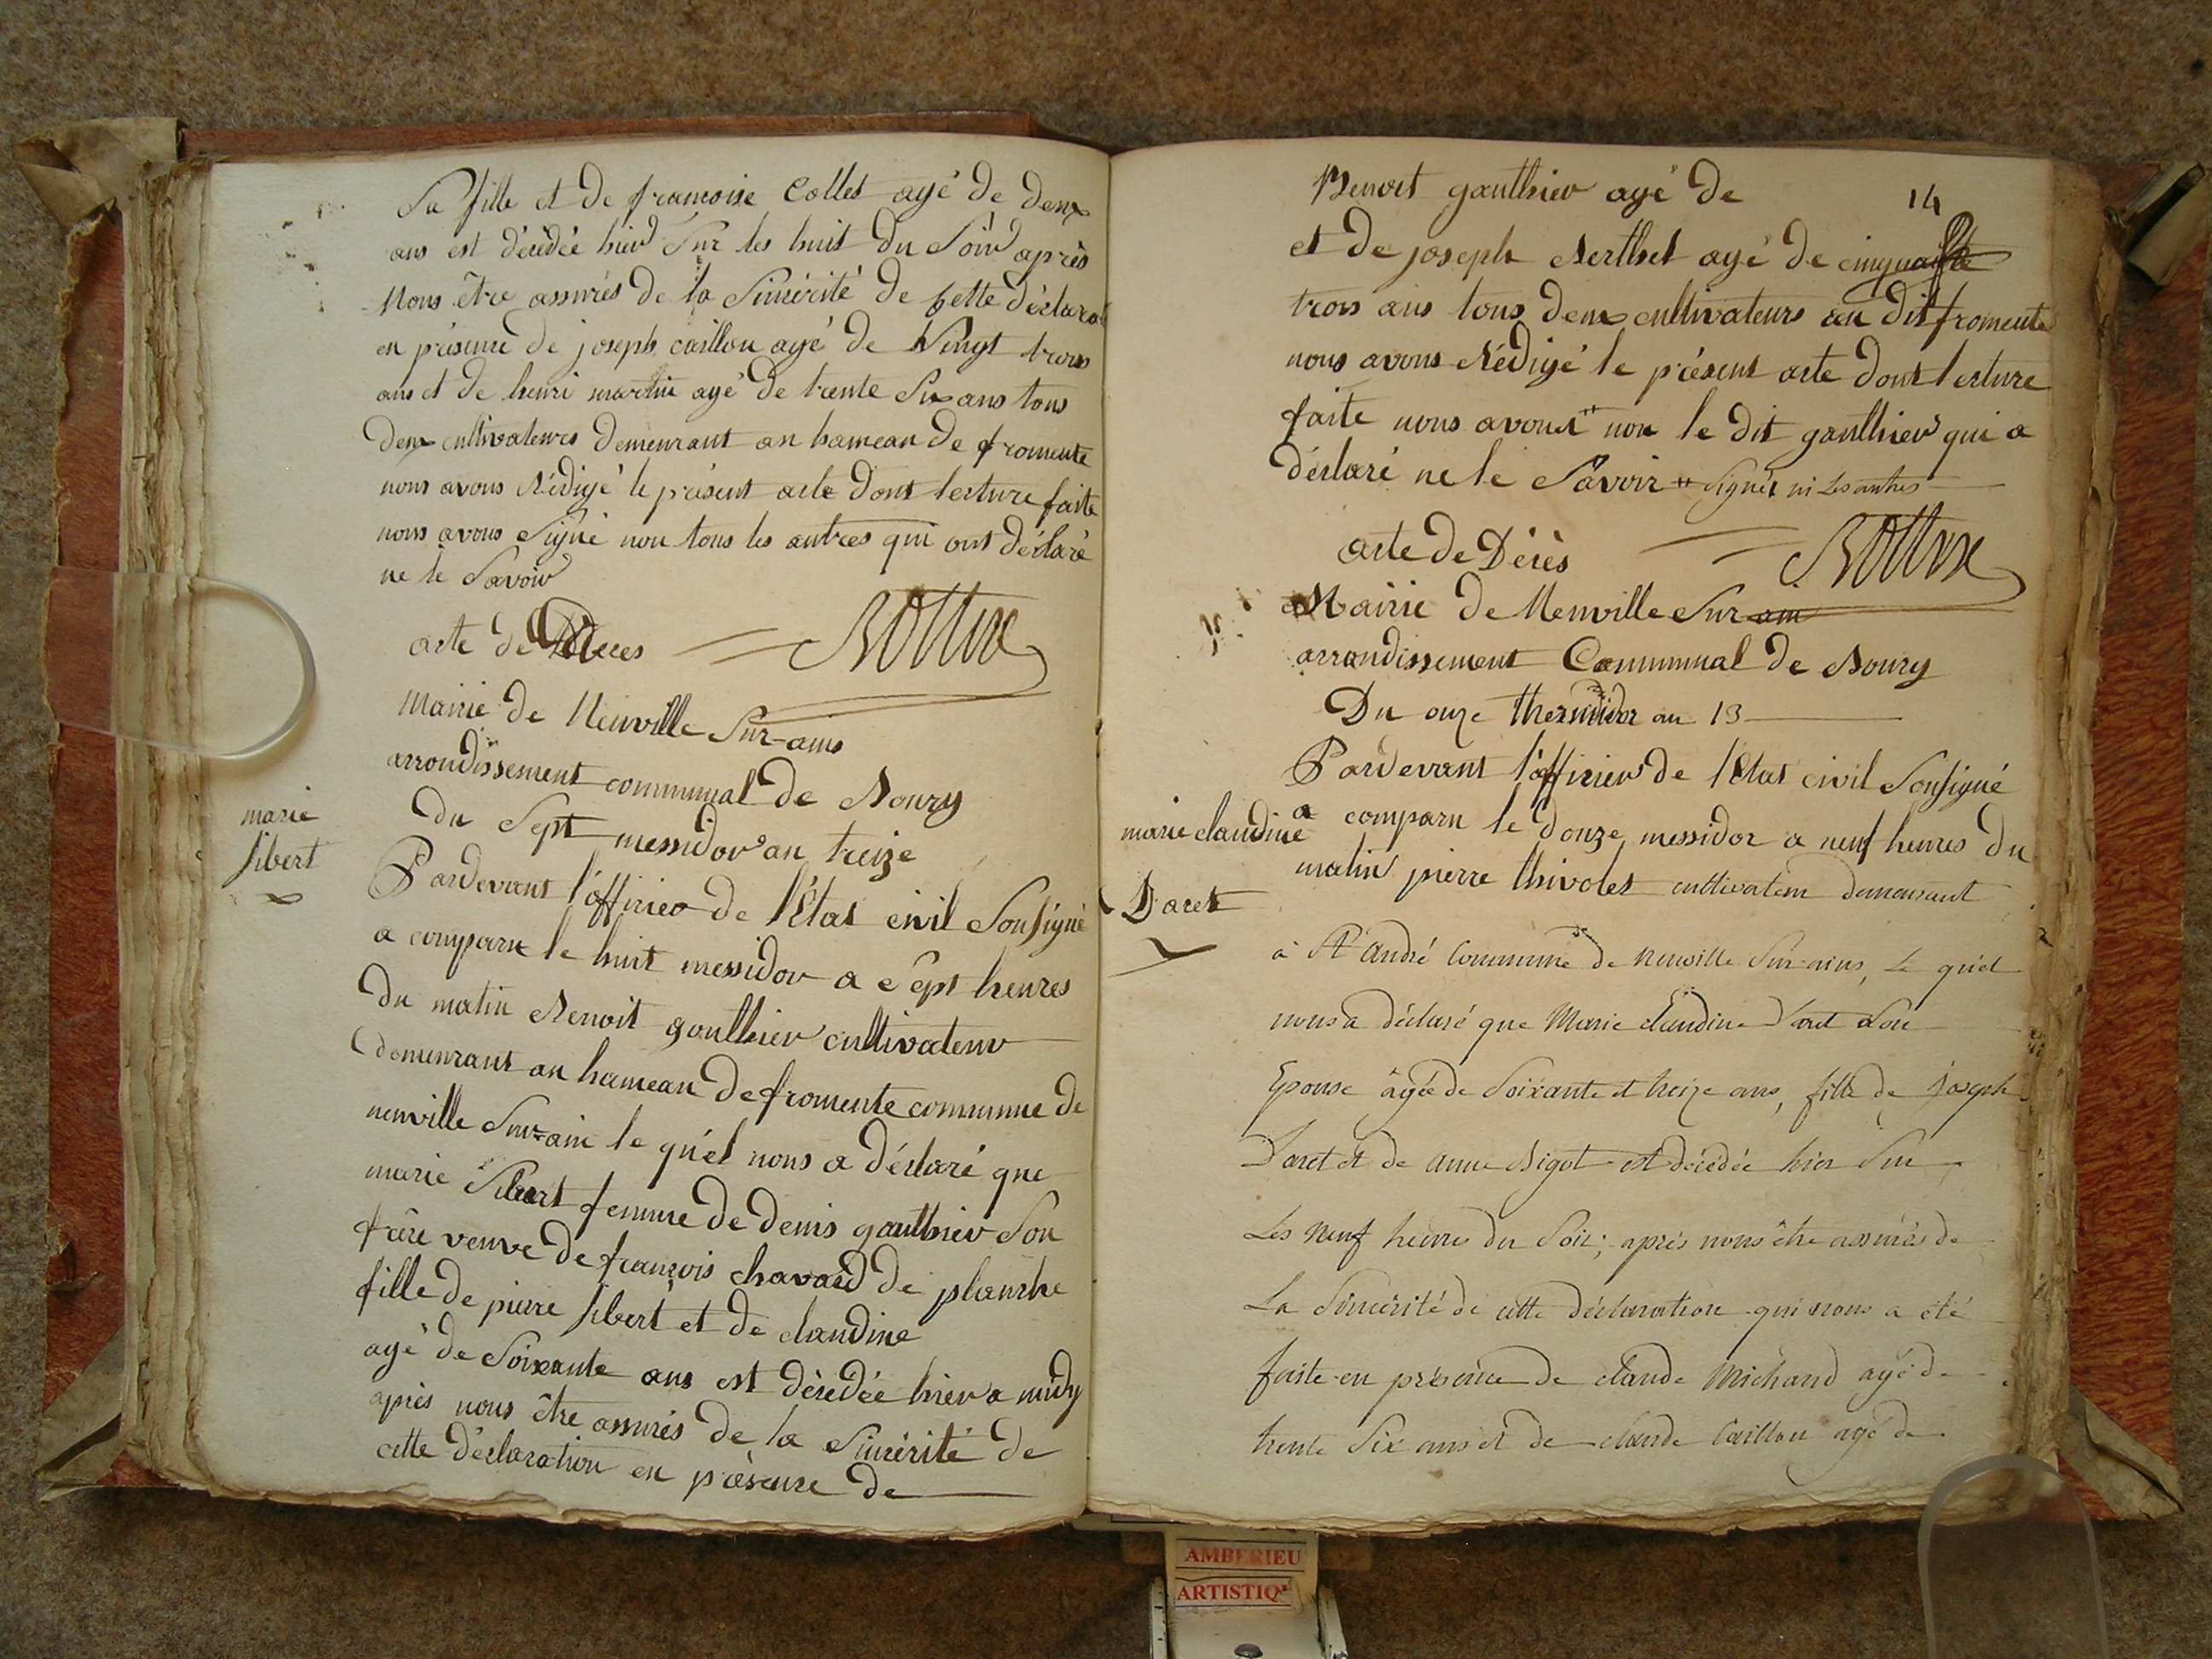 Sa fille et de francoise Collet agé de deux
ans est décédée hier Sur les huit du Soir après
Nous être assurés de la Sincérité de cette déclara
en présence de joseph caillou agé de Vingt trois
ans et de henri martin agé de trente Six ans tous
deux cultivateurs demeurant au hameau de fromente
nous avons Rédigé le présent acte dont lecture faite
nous avons Signé non tous les autres qui ont déclaré
ne le Savoir
acte de Décès
Mairie de Neuville Sur-ains
arrondissement communal de Bourg
du Sept messidor an treize
marie
sibert
Pardevant l'officier de l'Etat civil Soussigné
a comparu le huit messidor a Sept heures
du matin Benoit gauthier cultivateur
demeurant au hameau de fromente commune de
neuville Sur-ain le quel nous a déclaré que
marie Sibert femme de denis gauthier Son
frère veuve de françois chavard de planche
fille de pierre sibert et de claudine
agé de Soixante ans est décédée hier a midy
après nous être assurés de la Sincérité de
cette déclaration en présence de
14
Benoit gauthier agé de
et de joseph Berthet agé de cinquante
trois ans tous deux cultivateurs au dit fromente
nous avons Rédigé le présent acte dont lecture
faite nous avons " non le dit gauthier qui a
déclaré ne le Savoir " Signer ni Les autres
acte de Décès
Mairie de Neuville Sur ain
arrondissement Communal de Bourg
Du onze thermidor an 13
Pardevant l'officier de l'Etat civil Soussigné
a comparu le douze messidor a neuf heures du
marie claudine
Daret
matin pierre thivolet cultivateur demeurant
à St André Commune de neuville Sur-ains, Le quel
nous a déclaré que Marie Claudine Daret Son
Epouse âgée de Soixante et treize ans, fille de Joseph
Daret et de anne Bigot est décédée hier Sur
Les Neuf heures du Soir; après nous être assurés de
La Sincérité de cette déclaration qui nous a été
faite en présence de claude Michaud agé de
trente Six ans et de claude Caillou agé de
AMBERIEU
ARTISTIQ